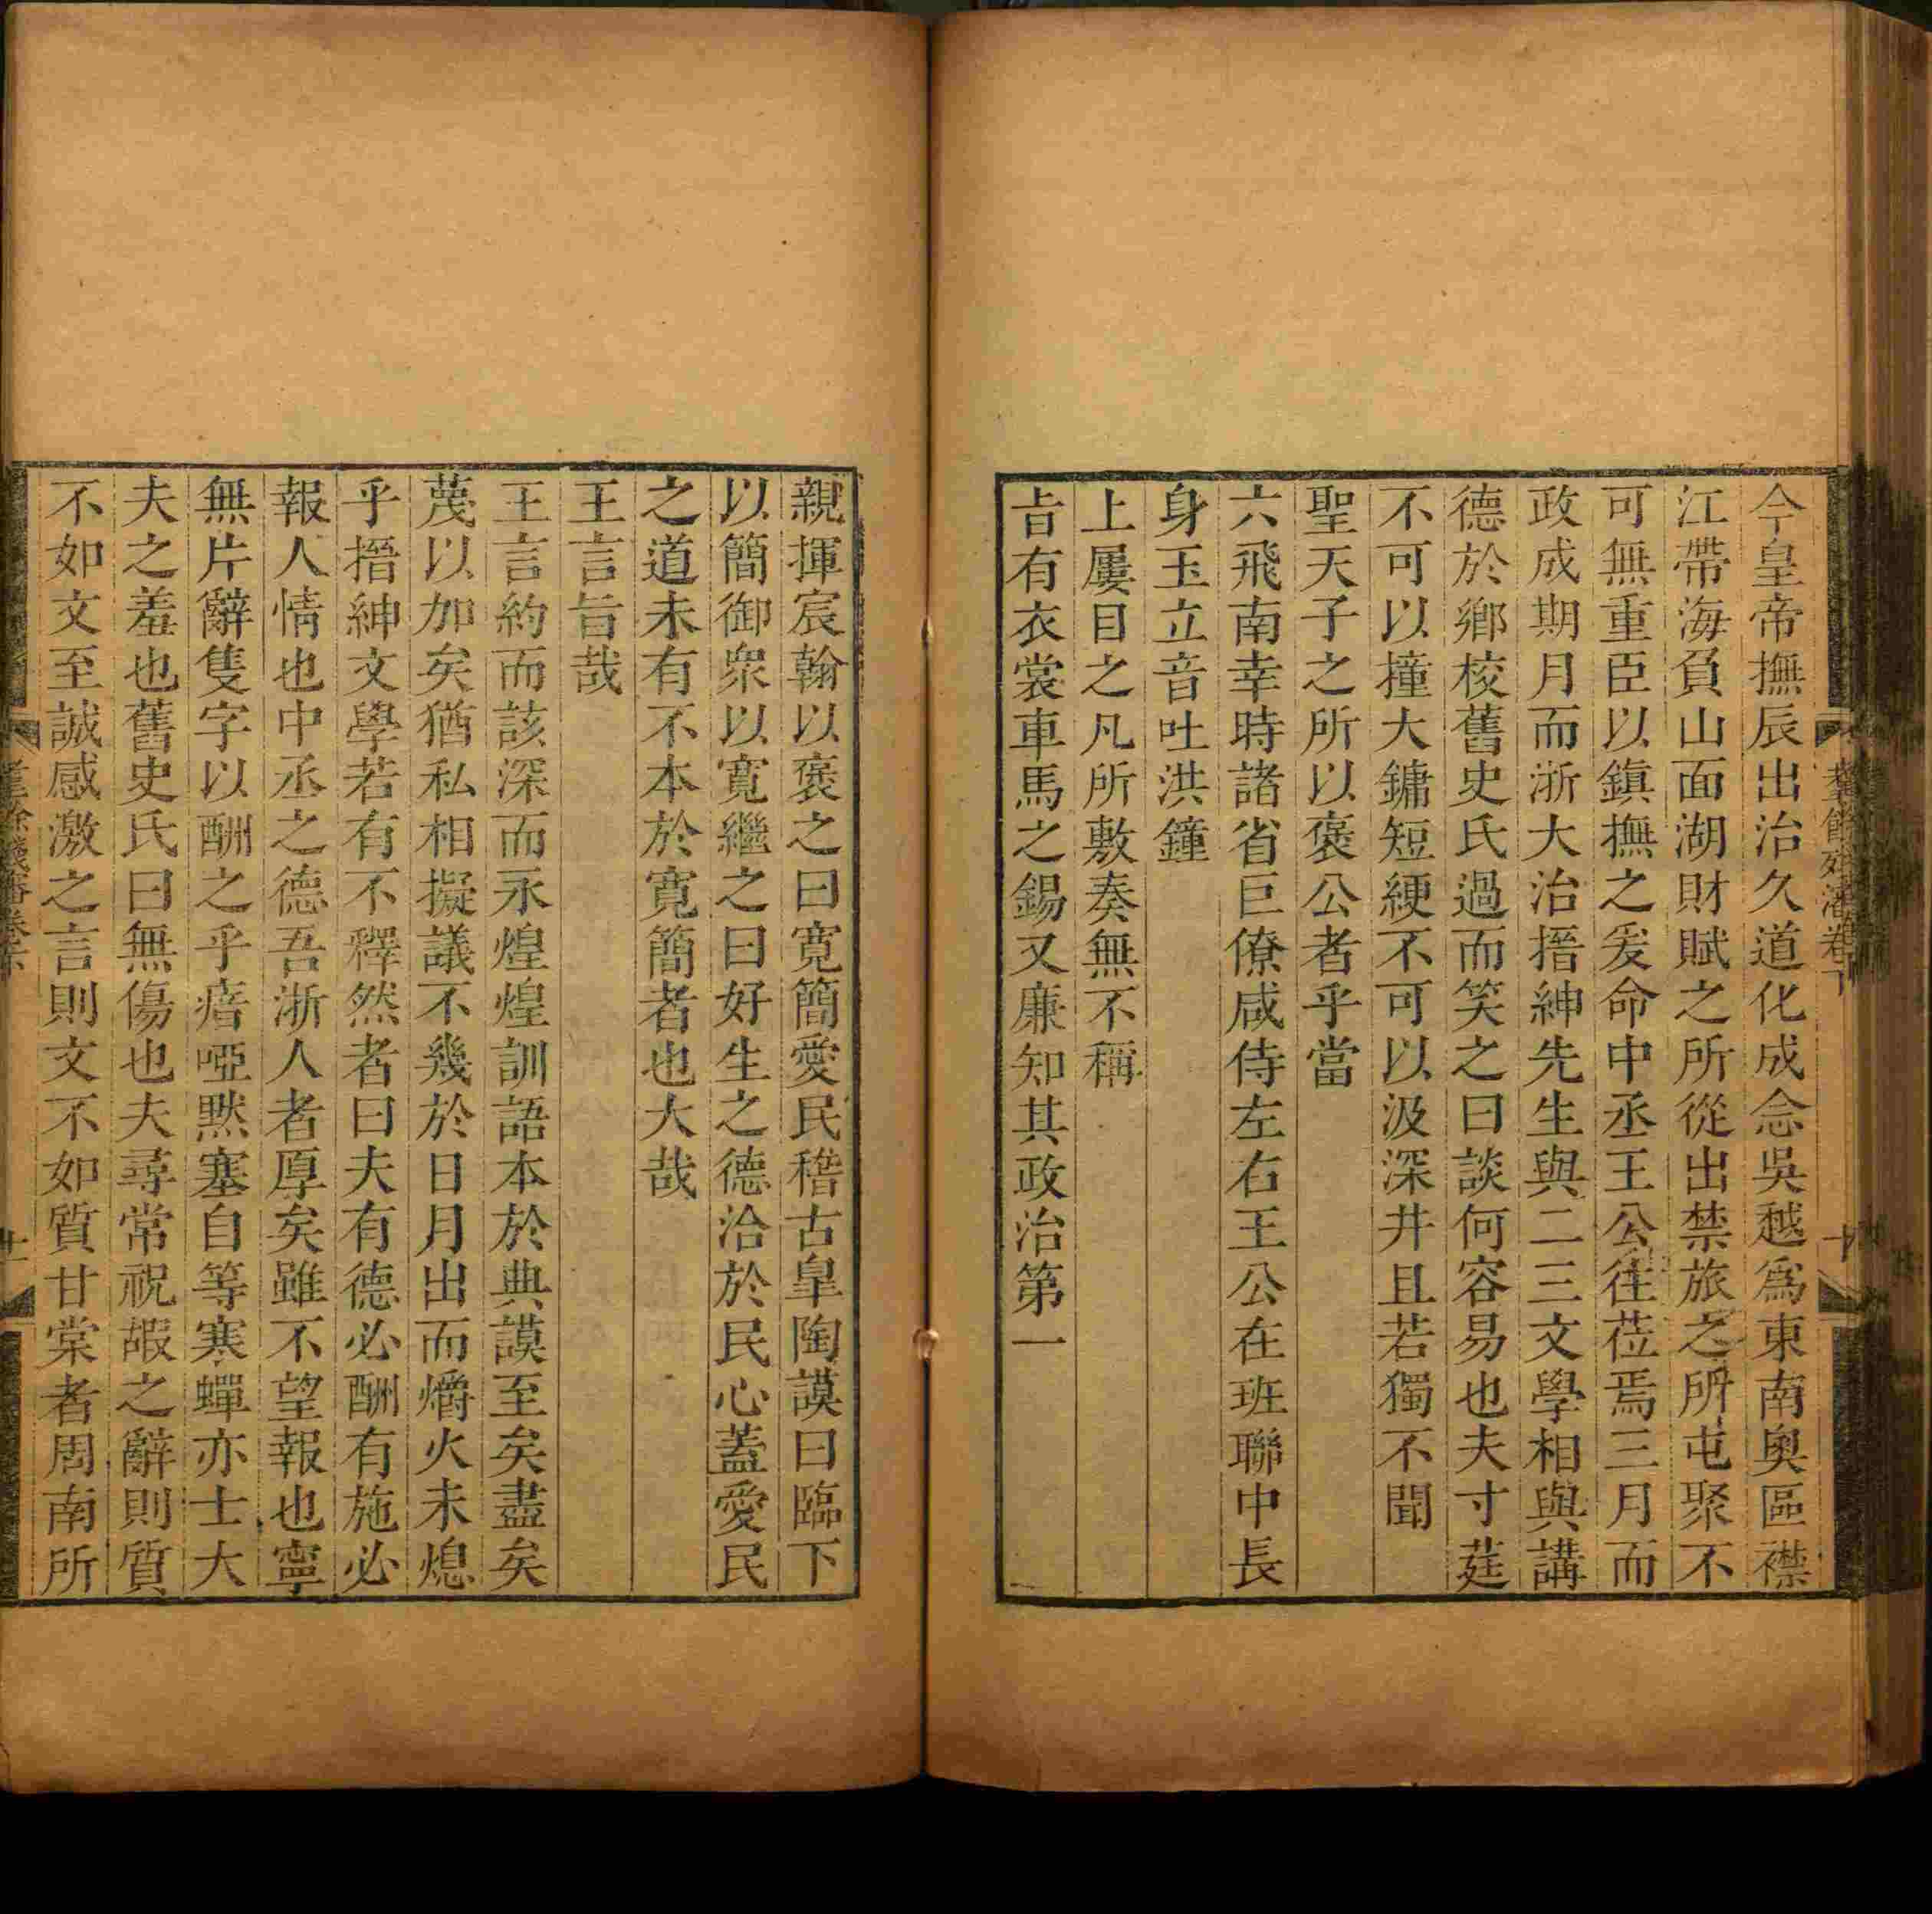 今皇帝撫辰出治久道化成念吳越爲東南奥區襟
江帶海負山面湖財賦之所從出禁旅之所屯聚不
可無重臣以鎮撫之爰命中丞王公徃莅焉三月而
政成期月而浙大治搢紳先生與二三文學相與講
德於鄉校舊史氏過而笑之曰談何容易也夫寸莛
不可以撞大鏞短綆不可以汲深井且若獨不聞
聖天子之所以褒公者乎當
六飛南幸時諸省巨僚咸侍左右王公在班聯中長
身玉立音吐洪鐘
上屢目之凡所敷奏無不稱
旨有衣裳車馬之錫又廉知其政治第一
親揮宸翰以褒之曰寛簡愛民稽古臯陶謨曰臨下
以簡御衆以寛繼之曰好生之德洽於民心蓋愛民
之道未有不本於寛簡者也大哉
王言旨哉
王言約而該深而永煌煌訓語本於典謨至矣盡矣
蔑以加矣猶私相擬議不幾於日月出而爝火未熄
乎搢紳文學若有不釋然者曰夫有德必酬有施必
報人情也中丞之德吾浙人者厚矣雖不望報也寧
無片辭隻字以酬之乎瘖啞默塞自等寒蟬亦士大
夫之羞也舊史氏曰無傷也夫尋常祝嘏之辭則質
不如文至誠感激之言則文不如質甘棠者周南所